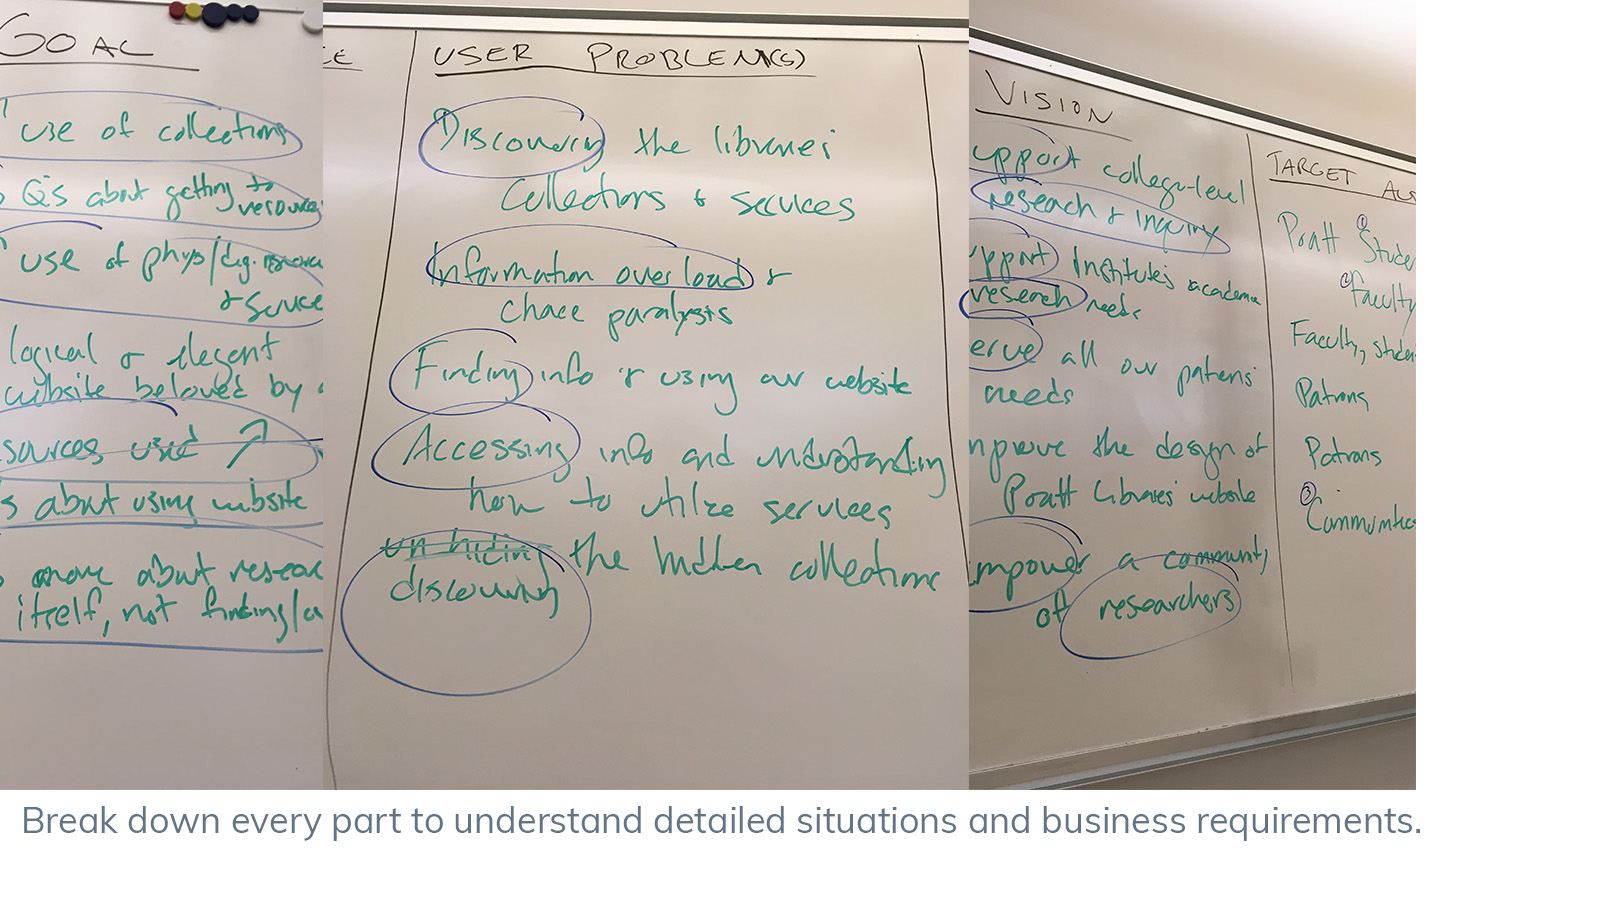 GOAL
use of collections
Q's about getting to
resources
use of phys/dig. resource
& service
logical & elegant
website beloved by
sources used ↗
s about using website
more about resear
itself, not finding/
USER PROBLEM(S)
Discovering the libraries'
Collections & services
Information overload &
choice paralysis
Finding info & using our website
Accessing info and understanding
how to utilize services
un hiding the hidden collections
discovering
VISION
upport college-level
research & inquiry
upport Institute's academic
research needs
erve all our patrons'
needs
mprove the design of
Pratt Libraries' website
mpower a community
of researchers
TARGET AU
Pratt ① Stude
② Faculty
Faculty, studen
Patrons
Patrons
③
Communities
Break down every part to understand detailed situations and business requirements.